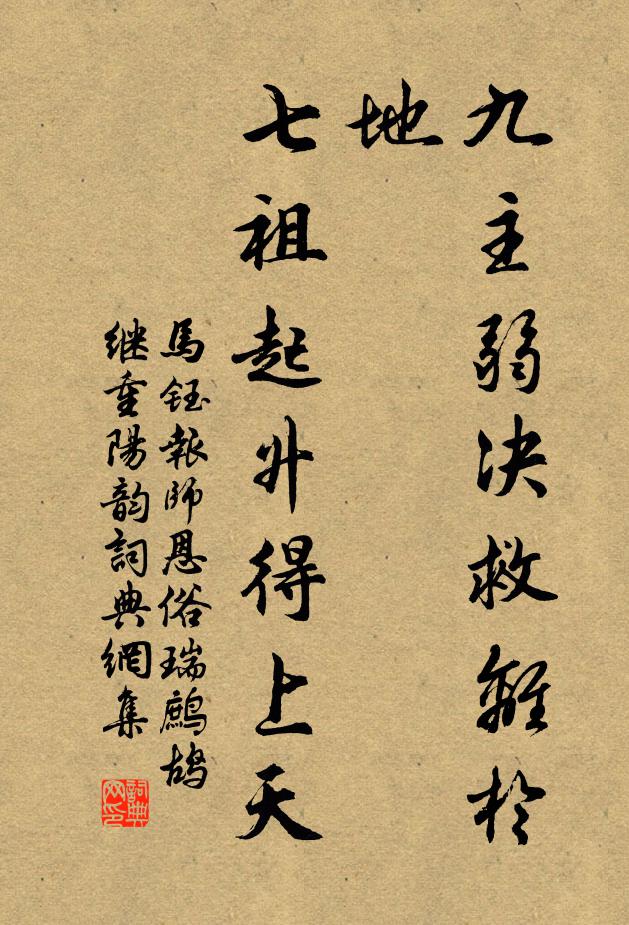 九主弱决救離於
地
七祖起升得上天
馬鈺報師恩俗瑞鷓鴣
继重陽韵詞典網集
詞典
网印